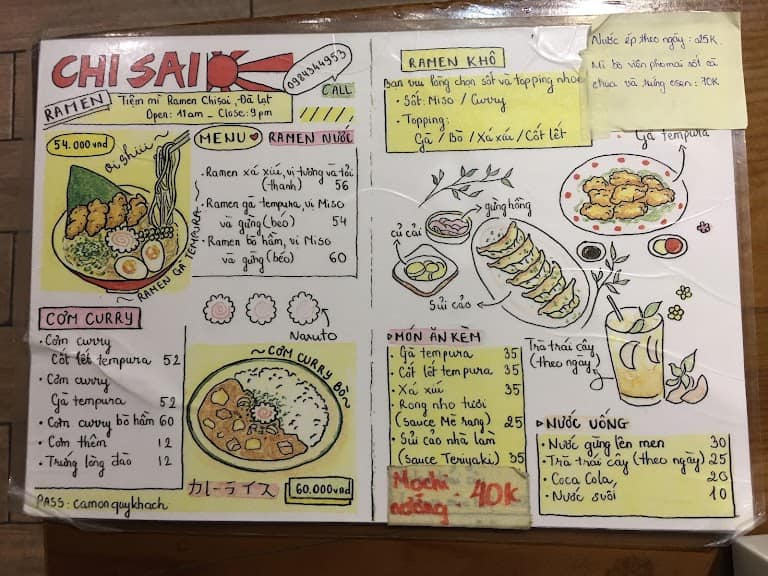 CHISAI
0984344953
CALL
RAMEN
Tiệm mì Ramen Chisai, Đà Lạt
Open: 11am - Close: 9pm
54.000vnd
Oishiii~
~ RAMEN GÀ TEMPURA ~
MENU
RAMEN NƯỚC
• Ramen xá xíu, vị tương và tỏi
(thanh) 56
• Ramen gà tempura, vị Miso
và gừng (béo) 54
• Ramen bò hầm, vị Miso
và gừng (béo) 60
Naruto
CƠM CURRY
• Cơm curry
Cốt lết tempura 52
• Cơm curry
Gà tempura 52
• Cơm curry bò hầm 60
• Cơm thêm 12
• Trứng lòng đào 12
~ CƠM CURRY BÒ ~
カレーライス
60.000vnd
PASS: camonquykhach
RAMEN KHÔ
Bạn vui lòng chọn sốt và topping nhoé
• Sốt: Miso / Curry
• Topping:
Gà / Bò / Xá xíu / Cốt lết
Nước ép theo ngày: 25K
Mì bò viên phomai sốt cà
chua và trứng onsen: 70K
Gà tempura
gừng hồng
củ cải
Sủi cảo
Trà trái cây
(theo ngày)
▷ MÓN ĂN KÈM
• Gà tempura 35
• Cốt lết tempura 35
• Xá xíu 35
• Rong nho tươi
(sauce Mè rang) 25
• Sủi cảo nhà làm
(sauce Teriyaki) 35
Mochi
nướng: 40k
▷ NƯỚC UỐNG
• Nước gừng lên men 30
• Trà trái cây (theo ngày) 25
• Coca Cola 20
• Nước suối 10